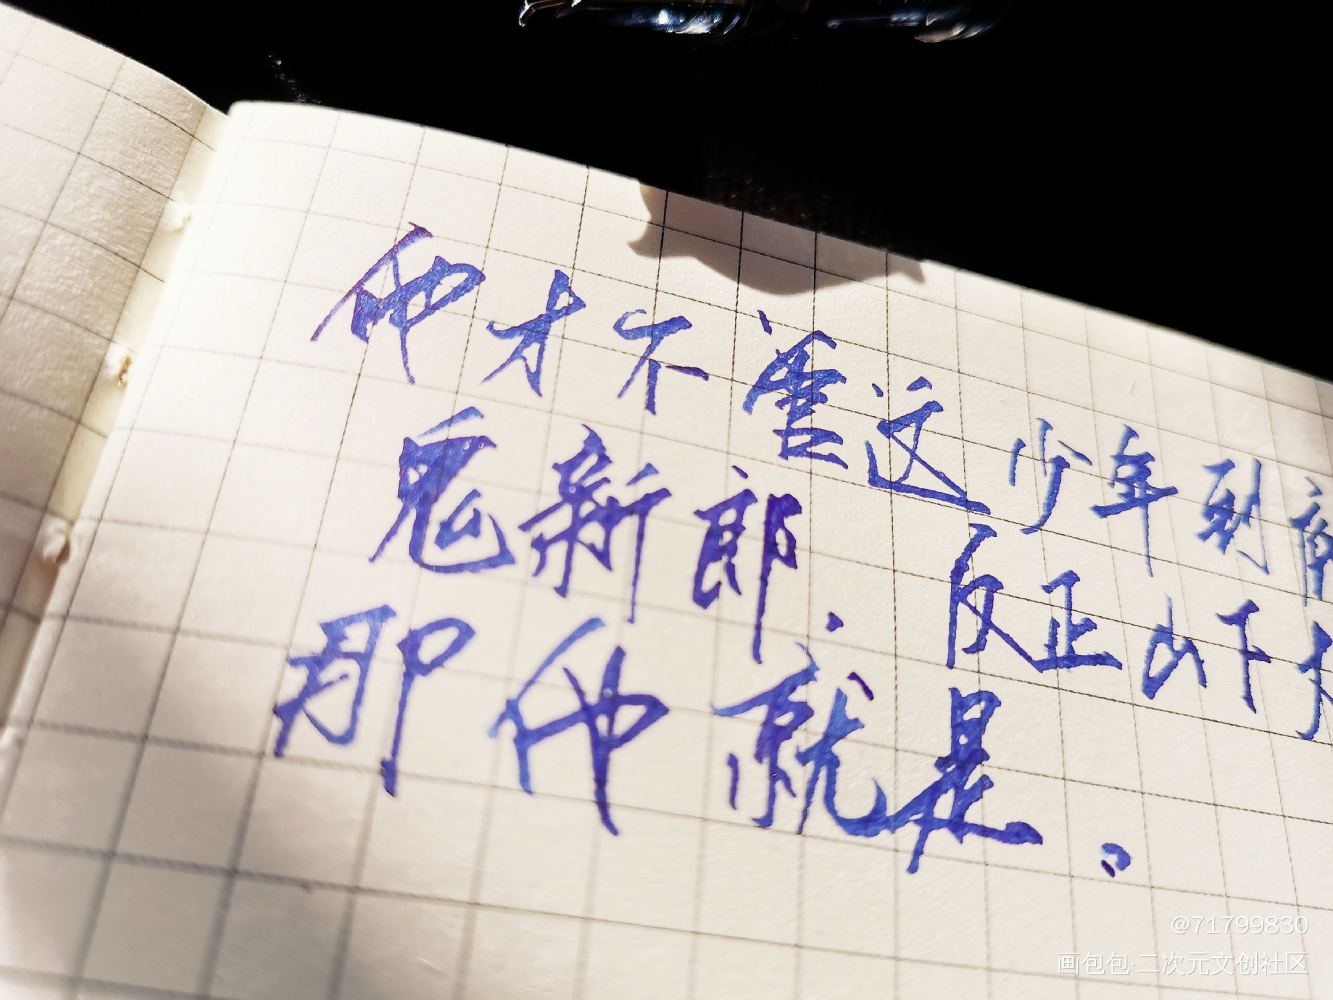 他才不管这少年到商
鬼新郎. 反正山下夫
那他就是。
@71799830
画包包·二次元文创社区